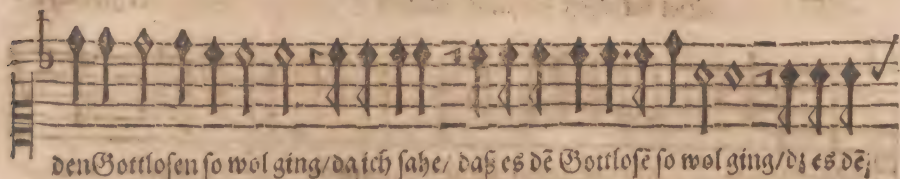 den Gottlosen so wol ging/da ich sahe/ daß es dē Gottlosē so wol ging/dz es dē/